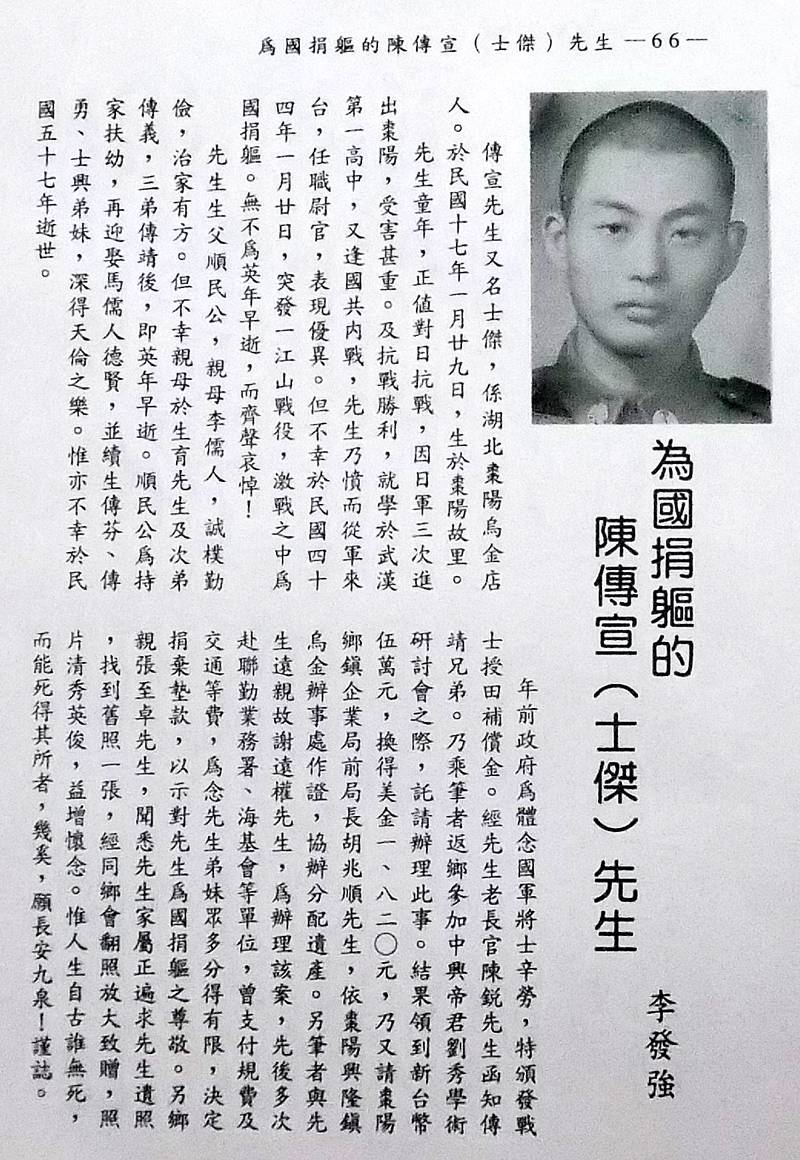 爲國捐軀的陳傳宣（士傑）先生 —66—
為國捐軀的
陳傳宣（士傑）先生
李發強
傳宣先生又名士傑，係湖北棗陽烏金店
人。於民國十七年一月廿九日，生於棗陽故里。
先生童年，正值對日抗戰，因日軍三次進
出棗陽，受害甚重。及抗戰勝利，就學於武漢
第一高中，又逢國共內戰，先生乃憤而從軍來
台，任職尉官，表現優異。但不幸於民國四十
四年一月廿日，突發一江山戰役，激戰之中爲
國捐軀。無不爲英年早逝，而齊聲哀悼！
先生生父順民公，親母李儒人，誠樸勤
儉，治家有方。但不幸親母於生育先生及次弟
傳義，三弟傳靖後，即英年早逝。順民公爲持
家扶幼，再迎娶馬儒人德賢，並續生傳芬、傳
勇、士興弟妹，深得天倫之樂。惟亦不幸於民
國五十七年逝世。
年前政府爲體念國軍將士辛勞，特頒發戰
士授田補償金。經先生老長官陳銳先生函知傳
靖兄弟。乃乘筆者返鄉參加中興帝君劉秀學術
研討會之際，託請辦理此事。結果領到新台幣
伍萬元，換得美金一、八二〇元，乃又請棗陽
鄉鎮企業局前局長胡兆順先生，依棗陽興隆鎮
烏金辦事處作證，協辦分配遺產。另筆者與先
生遠親故謝遠權先生，爲辦理該案，先後多次
赴聯勤業務署、海基會等單位，曾支付規費及
交通等費，爲念先生弟妹眾多分得有限，決定
捐棄墊款，以示對先生爲國捐軀之尊敬。另鄉
親張至卓先生，聞悉先生家屬正遍求先生遺照
，找到舊照一張，經同鄉會翻照放大致贈，照
片清秀英俊，益增懷念。惟人生自古誰無死，
而能死得其所者，幾奚，願長安九泉！謹誌。